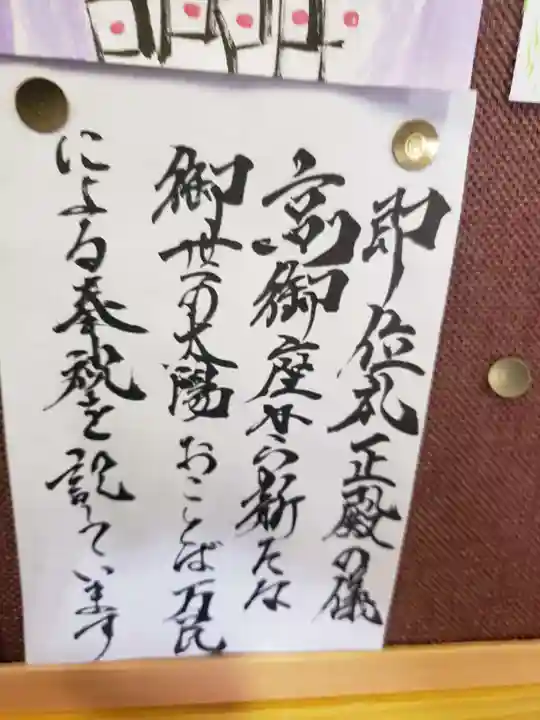 即位礼正殿の儀
高御座から新たな
御世の太陽おことば万民
による奉祝を説っています